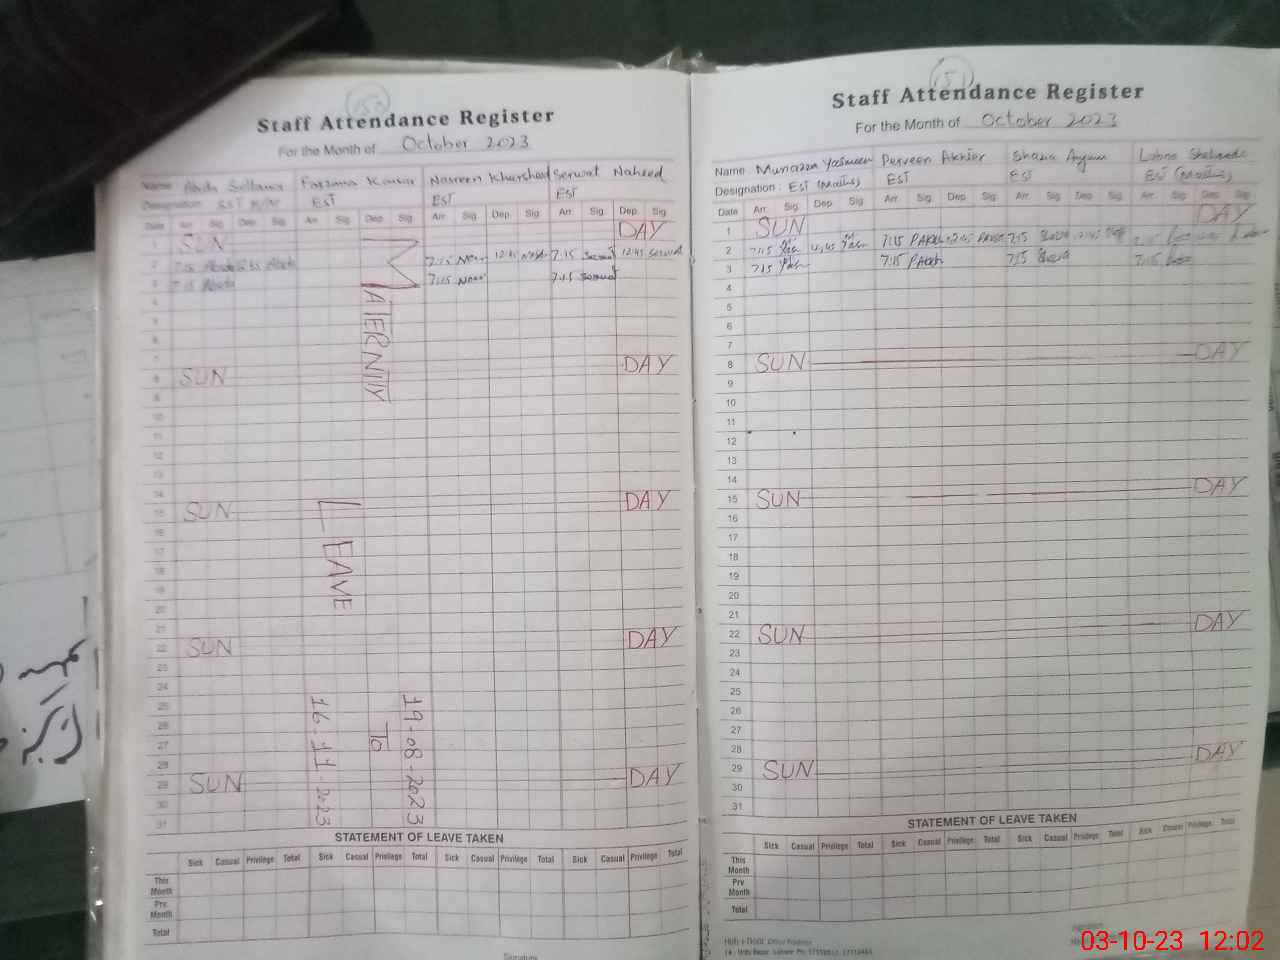 150
Staff Attendance Register
For the Month of October 2023
Name Farzana Kausar Nasreen Khursheed Serwat Naheed
Designation: EST EST EST
Date Arr. Sig Dep Sig Arr Sig Dep Sig Arr Sig Dep Sig Arr. Sig Dep. Sig
1 SUN DAY
2 7:15 7:15 12:45 7:15 Serwat 12:45 Serwat
3 7:15 7:15 7:15 Serwat
4
5
6
7
8 SUN DAY
9
10
11
12
13
14
15 SUN DAY
16
17
18
19
20
21
22 SUN DAY
23
24
25
26
27
28
29 SUN DAY
30
31
MATERNITY
LEAVE
19-08-2023
To
16-11-2023
STATEMENT OF LEAVE TAKEN
Sick Casual Privilege Total Sick Casual Privilege Total Sick Casual Privilege Total Sick Casual Privilege Total
This Month
Prv. Month
Total
Signature
151
Staff Attendance Register
For the Month of October 2023
Name: Munazza Yasmeen Perveen Akhter Shazia
Designation: EST (Maths) EST EST EST (Maths)
Date Arr. Sig Dep Sig Arr. Sig Dep Sig Arr Sig Dep Sig Arr Sig Dep Sig
1 SUN DAY
2 7:15 7:15 PAkh 7:15
3 7:15 7:15 PAkh 7:15 7:15
4
5
6
7
8 SUN DAY
9
10
11
12
13
14
15 SUN DAY
16
17
18
19
20
21
22 SUN DAY
23
24
25
26
27
28
29 SUN DAY
30
31
STATEMENT OF LEAVE TAKEN
Sick Casual Privilege Total Sick Casual Privilege Total Sick Casual Privilege Total Sick Casual Privilege Total
This Month
Prv Month
Total
03-10-23 12:02